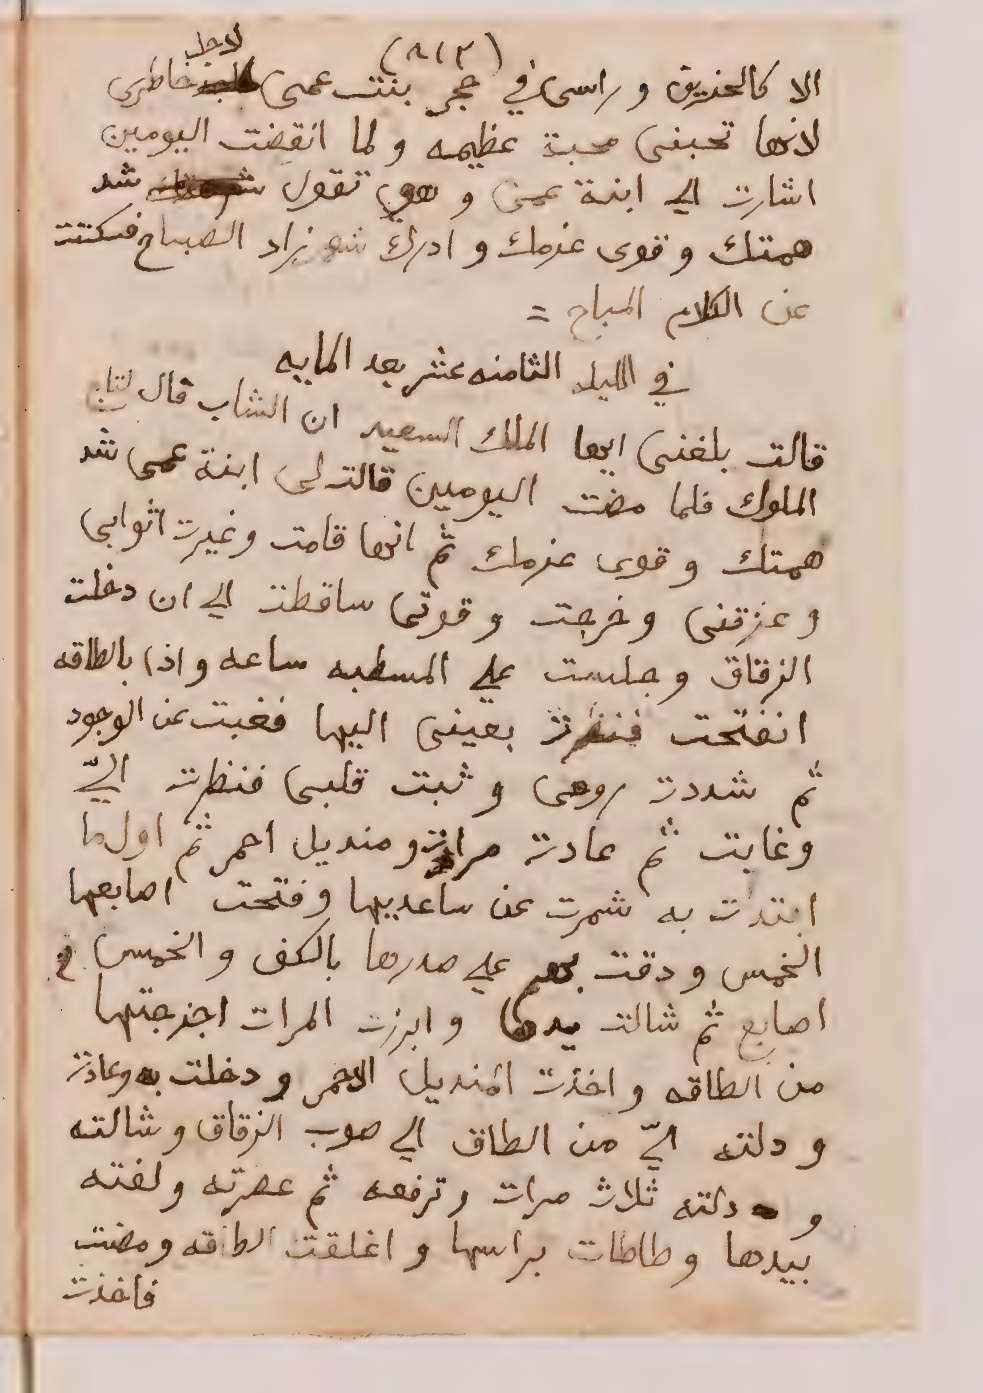 (٨١٢)
لاجل
الا كالخزيق وراسى في حجر بنت عمى خاطرى
لانها تحبنى محبة عظيمه ولما انقضت اليومين
اشارت الي ابنة عمى و هى تقول شد
همتك وقوى عزمك و ادرك شهرزاد الصباح فسكتت
عن الكلام المباح =
في الليله الثامنه عشر بعد المايه
قالت بلغنى ايها الملك السعيد ان الشاب قال لتاج
الملوك فلما مضت اليومين قالت لى ابنة عمى شد
همتك وقوى عزمك ثم انها قامت وغيرت اثوابى
و عزقنى وخرجت وقوتى ساقطت الي ان دخلت
الزقاق وجلست علي المسطبه ساعه واذا بالطاقه
انفتحت فنظرت بعينى اليها فغبت عن الوجود
ثم شددت روحى وثبت قلبى فنظرت اليّ
وغابت ثم عادت مرات ومنديل احمر ثم اول ما
ابتدات به شمرت عن ساعديها وفتحت اصابعها
الخمس ودقت بهم علي صدرها بالكف والخمس
اصابع ثم شالت يدها وابرزت المرات اخرجتها
من الطاقه واخذت المنديل الاحمر ودخلت به وعادت
و دلته اليّ من الطاق الي صوب الزقاق وشالته
و دلته ثلاث مرات وترفعه ثم عصرته ولفته
بيدها وطاطات براسها و اغلقت الطاقه ومضت
فاخذت